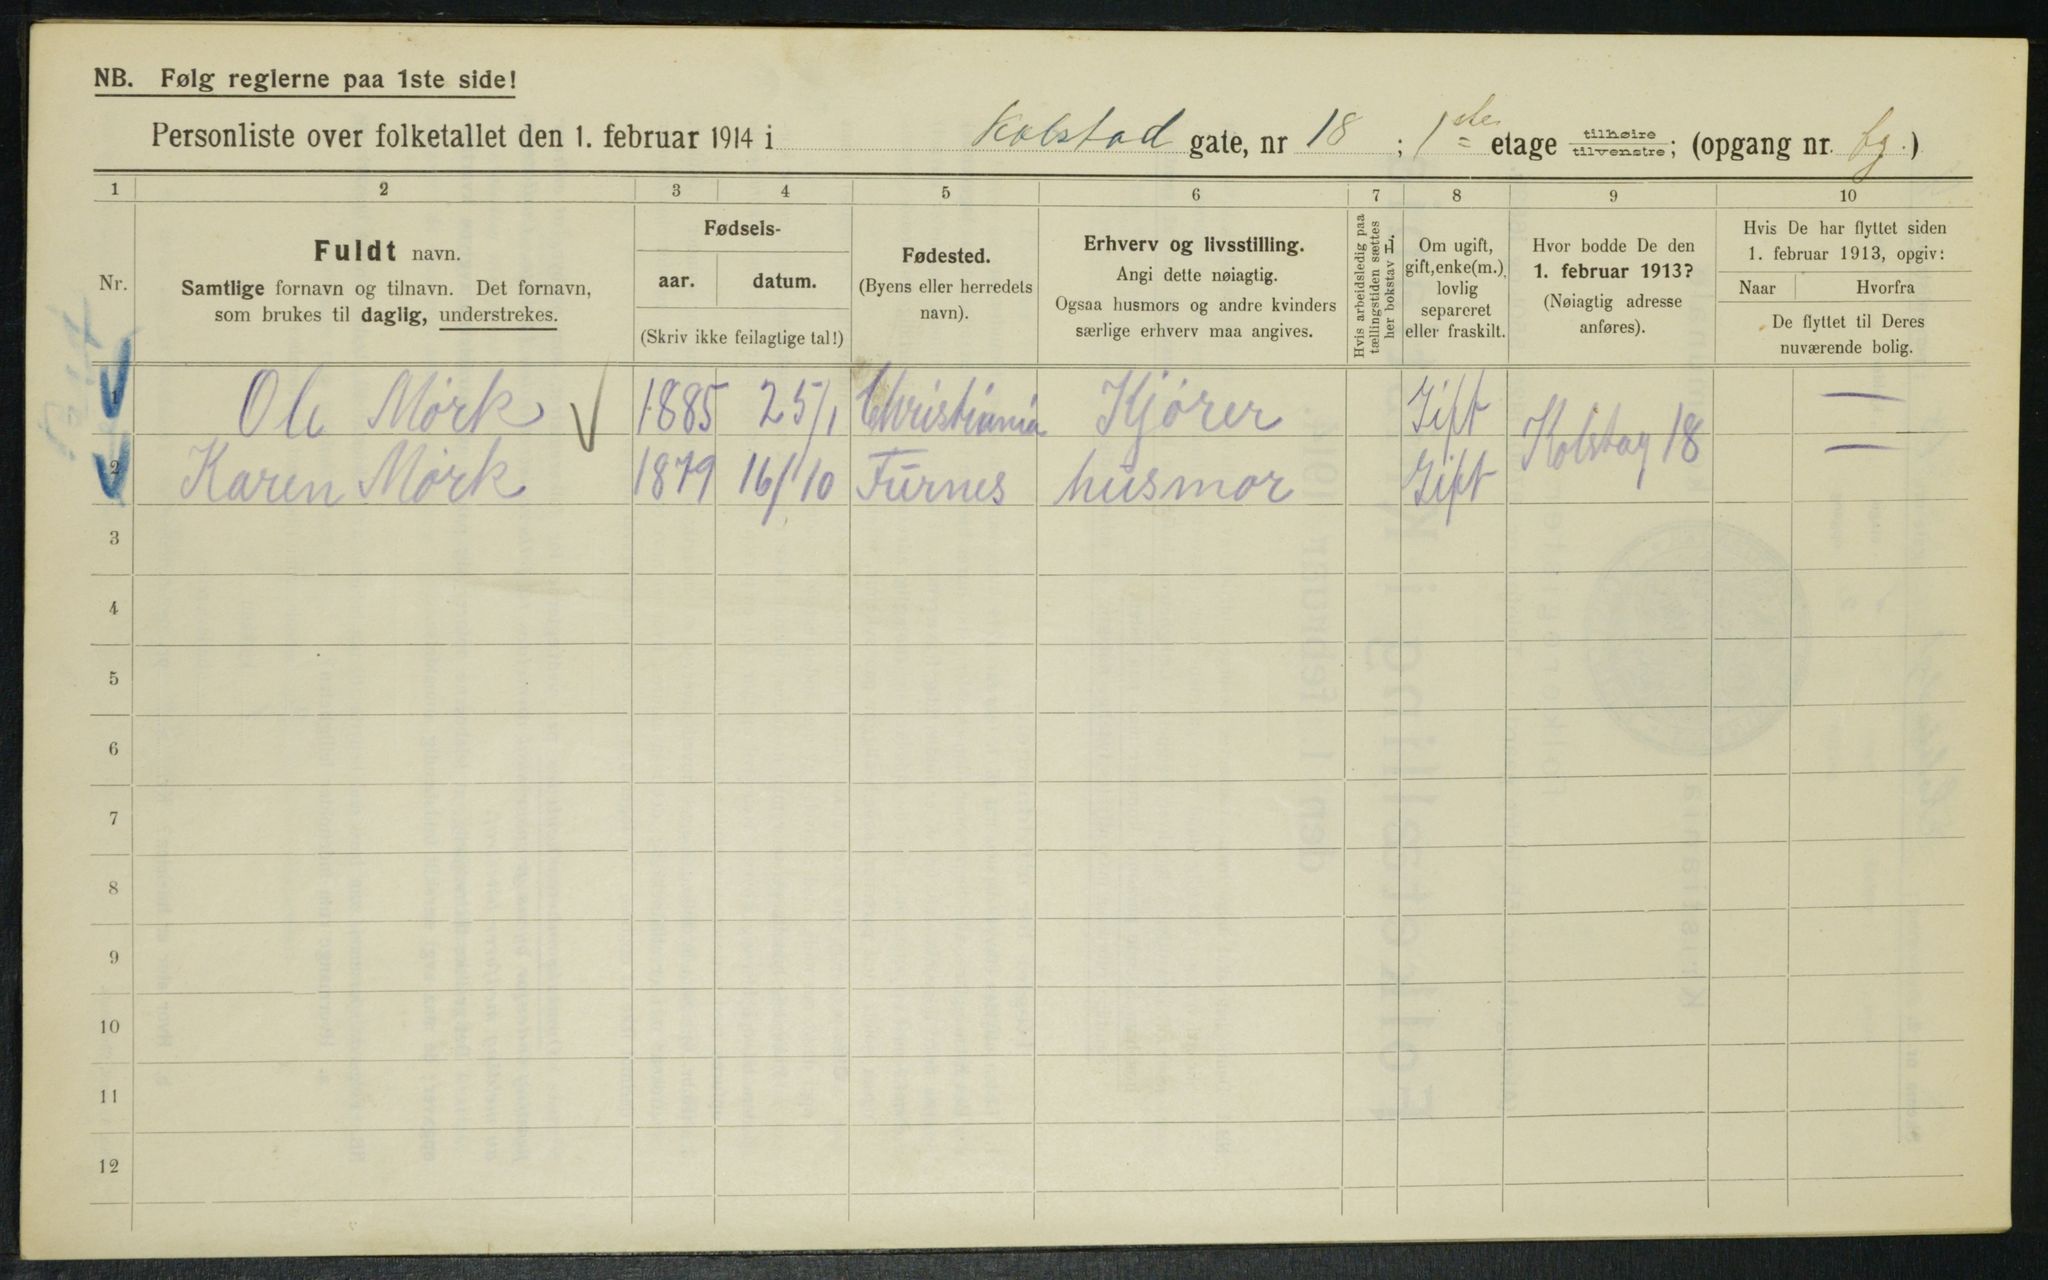 NB. Følg reglerne paa 1ste side!
Personliste over folketallet den 1. februar 1914 i Kolstad gate, nr 18 ; 1ste etage tilhøire/tilvenstre; (opgang nr. bg.)
1 2 3 4 5 6 7 8 9 10
Nr.
Fuldt navn.
Samtlige fornavn og tilnavn. Det fornavn,
som brukes til daglig, understrekes.
Fødsels-
aar. datum.
(Skriv ikke feilagtige tal!)
Fødested.
(Byens eller herredets
navn).
Erhverv og livsstilling.
Angi dette nøiagtig.
Ogsaa husmors og andre kvinders
særlige erhverv maa angives.
Hvis arbeidsledig paa
tællingstiden sættes
her bokstav L.
Om ugift,
gift, enke(m.),
lovlig
separeret
eller fraskilt.
Hvor bodde De den
1. februar 1913?
(Nøiagtig adresse
anføres).
Hvis De har flyttet siden
1. februar 1913, opgiv:
Naar Hvorfra
De flyttet til Deres
nuværende bolig.
1 Ole Mørk 1885 25/1 Christiania Kjører Gift —
Kolstag 18
2 Karen Mørk 1879 16/10 Furnes husmor Gift —
3
4
5
6
7
8
9
10
11
12